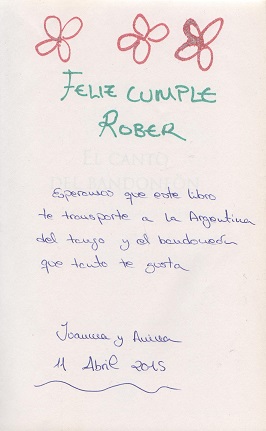 FELIZ CUMPLE
ROBER
EL CANTO
DEL BANDONEÓN
Esperamos que este libro
te transporte a la Argentina
del tango y el bandoneón
que tanto te gusta
Joanna y
11 Abril 2015